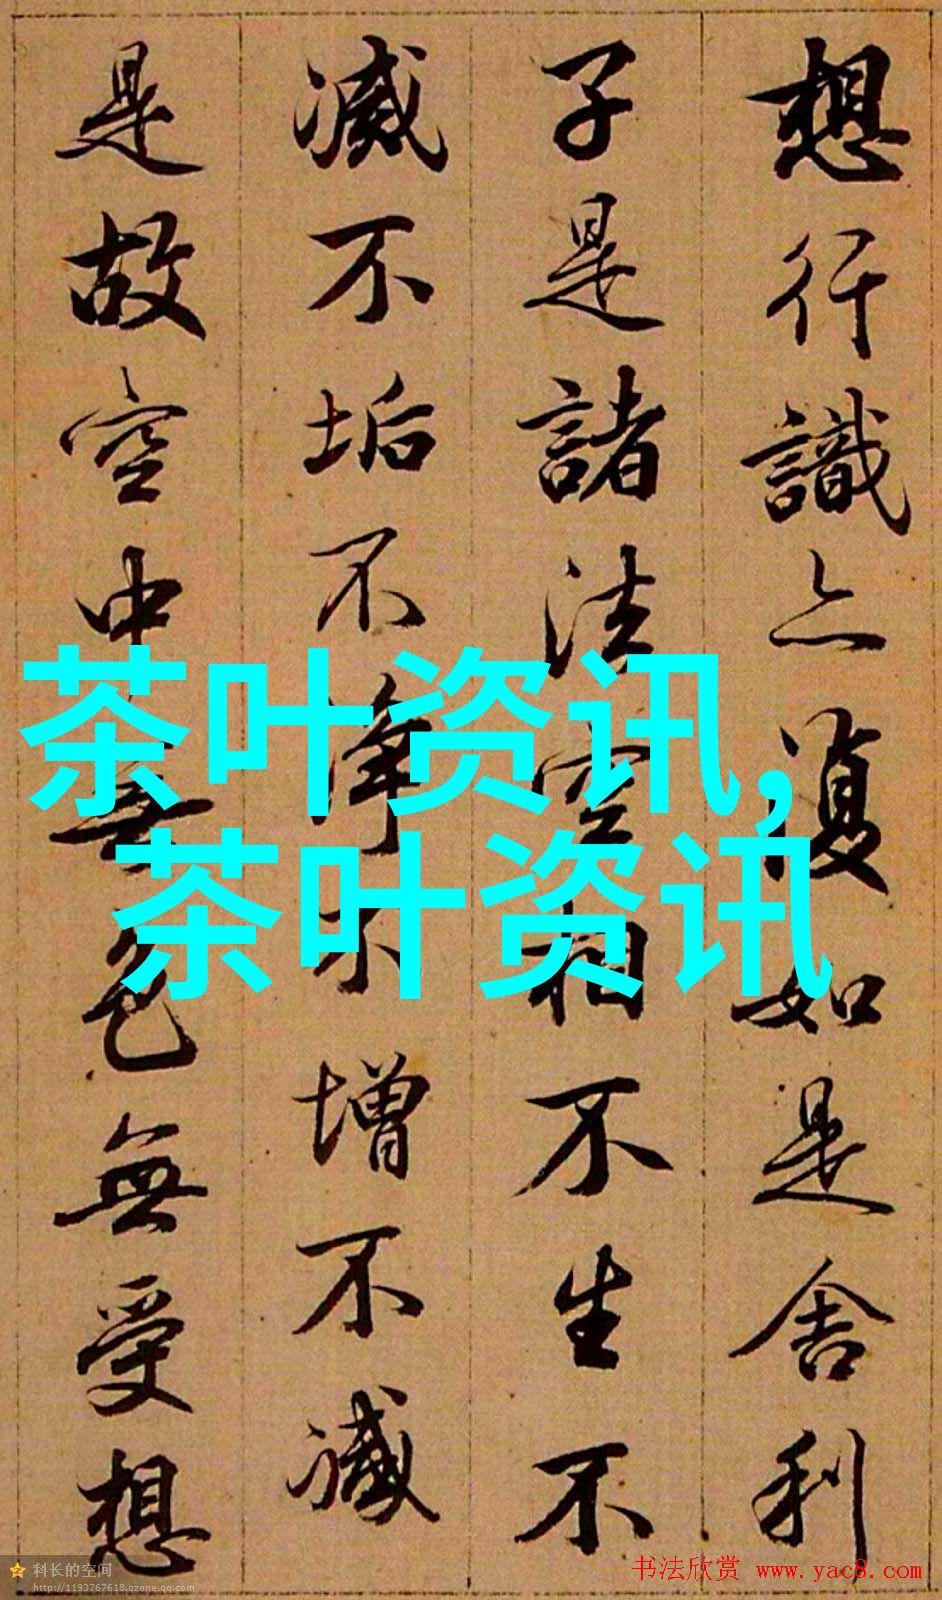 想行識亦復如是舍利
子是諸法空相不生不
滅不垢不淨不增不減
是故空中無色無受想
茶叶资讯,
茶叶资讯
科长的空间
http://1193767618.qzone.qq.com
书法欣赏 www.yac8.com